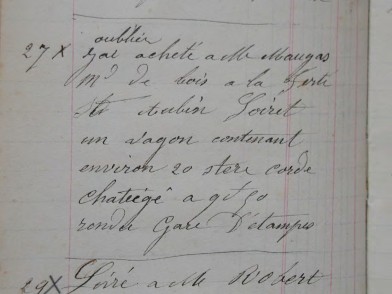 oublier
27 X J'ai acheté a Mr Maugas
Md de bois a la ferté
St Aubin Loiret
un vagon contenant
environ 20 stere corde
a 9f50
rendu Gare D'étampes
29 X Livré a Mr Robert